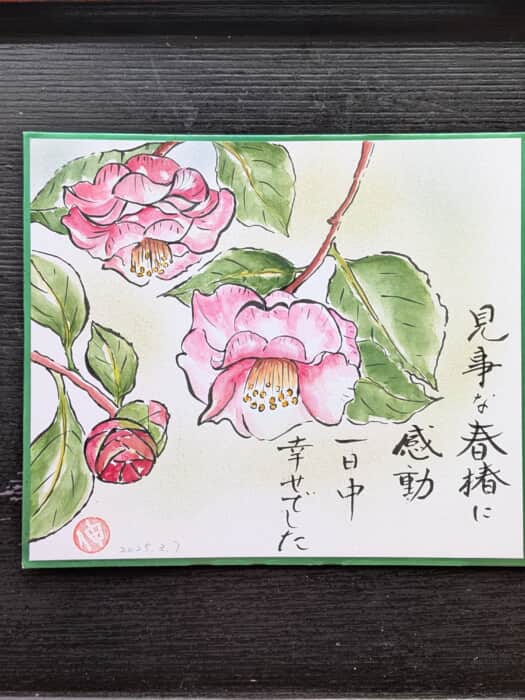 見事な春椿に
感動
一日中
幸せでした
2025.2.7